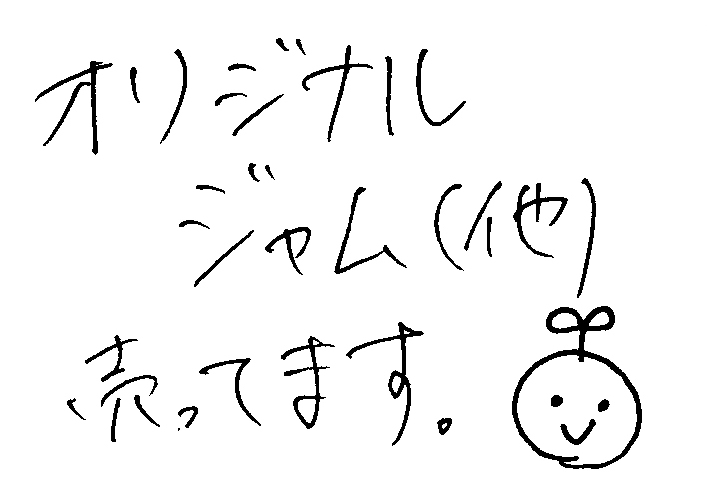 オリジナル
ジャム(他)
売ってます。